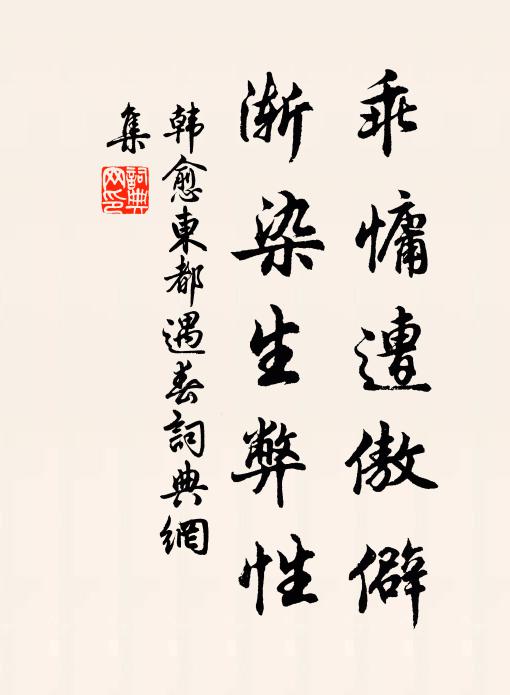 乖慵遭傲僻
漸染生弊性
韩愈東都遇春詞典網
集
詞典
网印